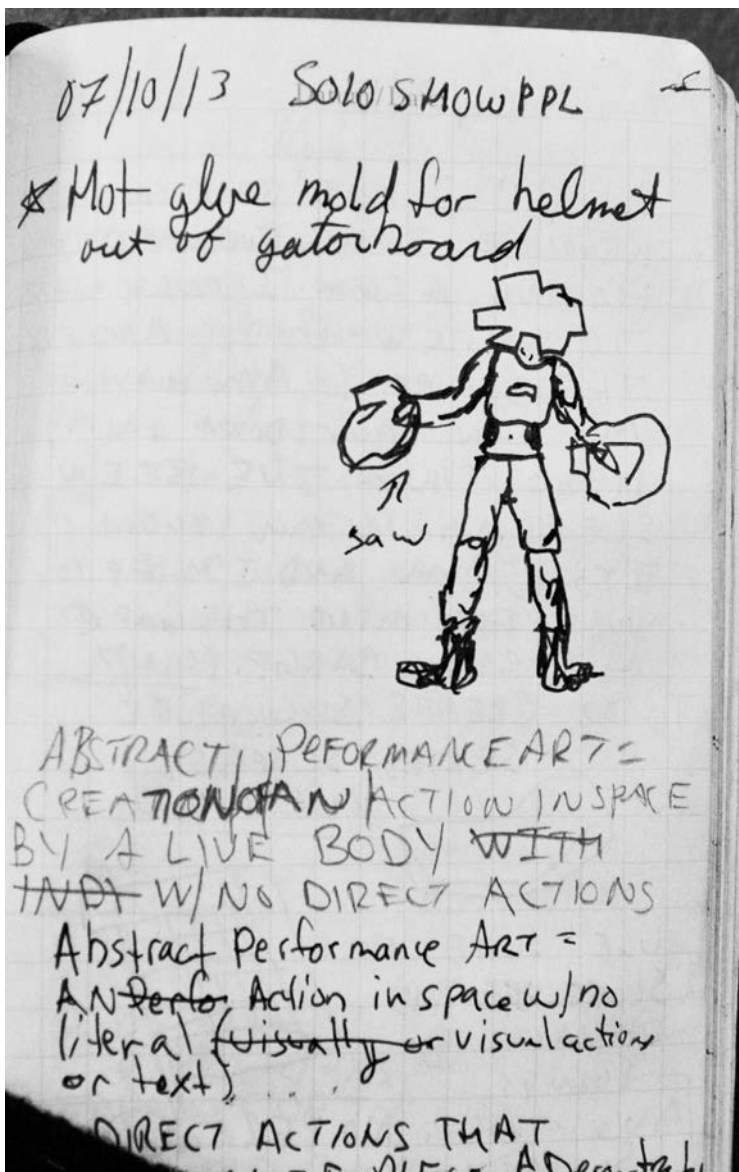 07/10/13 SOLO SHOW PPL
* Hot glue mold for helmet
out of gatorboard
saw
ABSTRACT PEFORMANCE ART =
CREATION OF AN ACTION IN SPACE
BY A LIVE BODY WITH
INDI W/ NO DIRECT ACTIONS
Abstract Performance ART =
AN Perfo Action in space w/ no
literal (visually or visual actions
or text)
DIRECT ACTIONS THAT